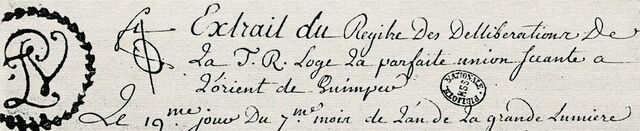 Extrait du Regitre Des Delliberations De
La T. R. Loge La parfaite union Seante a
L'orient de Quimper
Le 19me jour Du 7me mois de L'an de La grande Lumiere